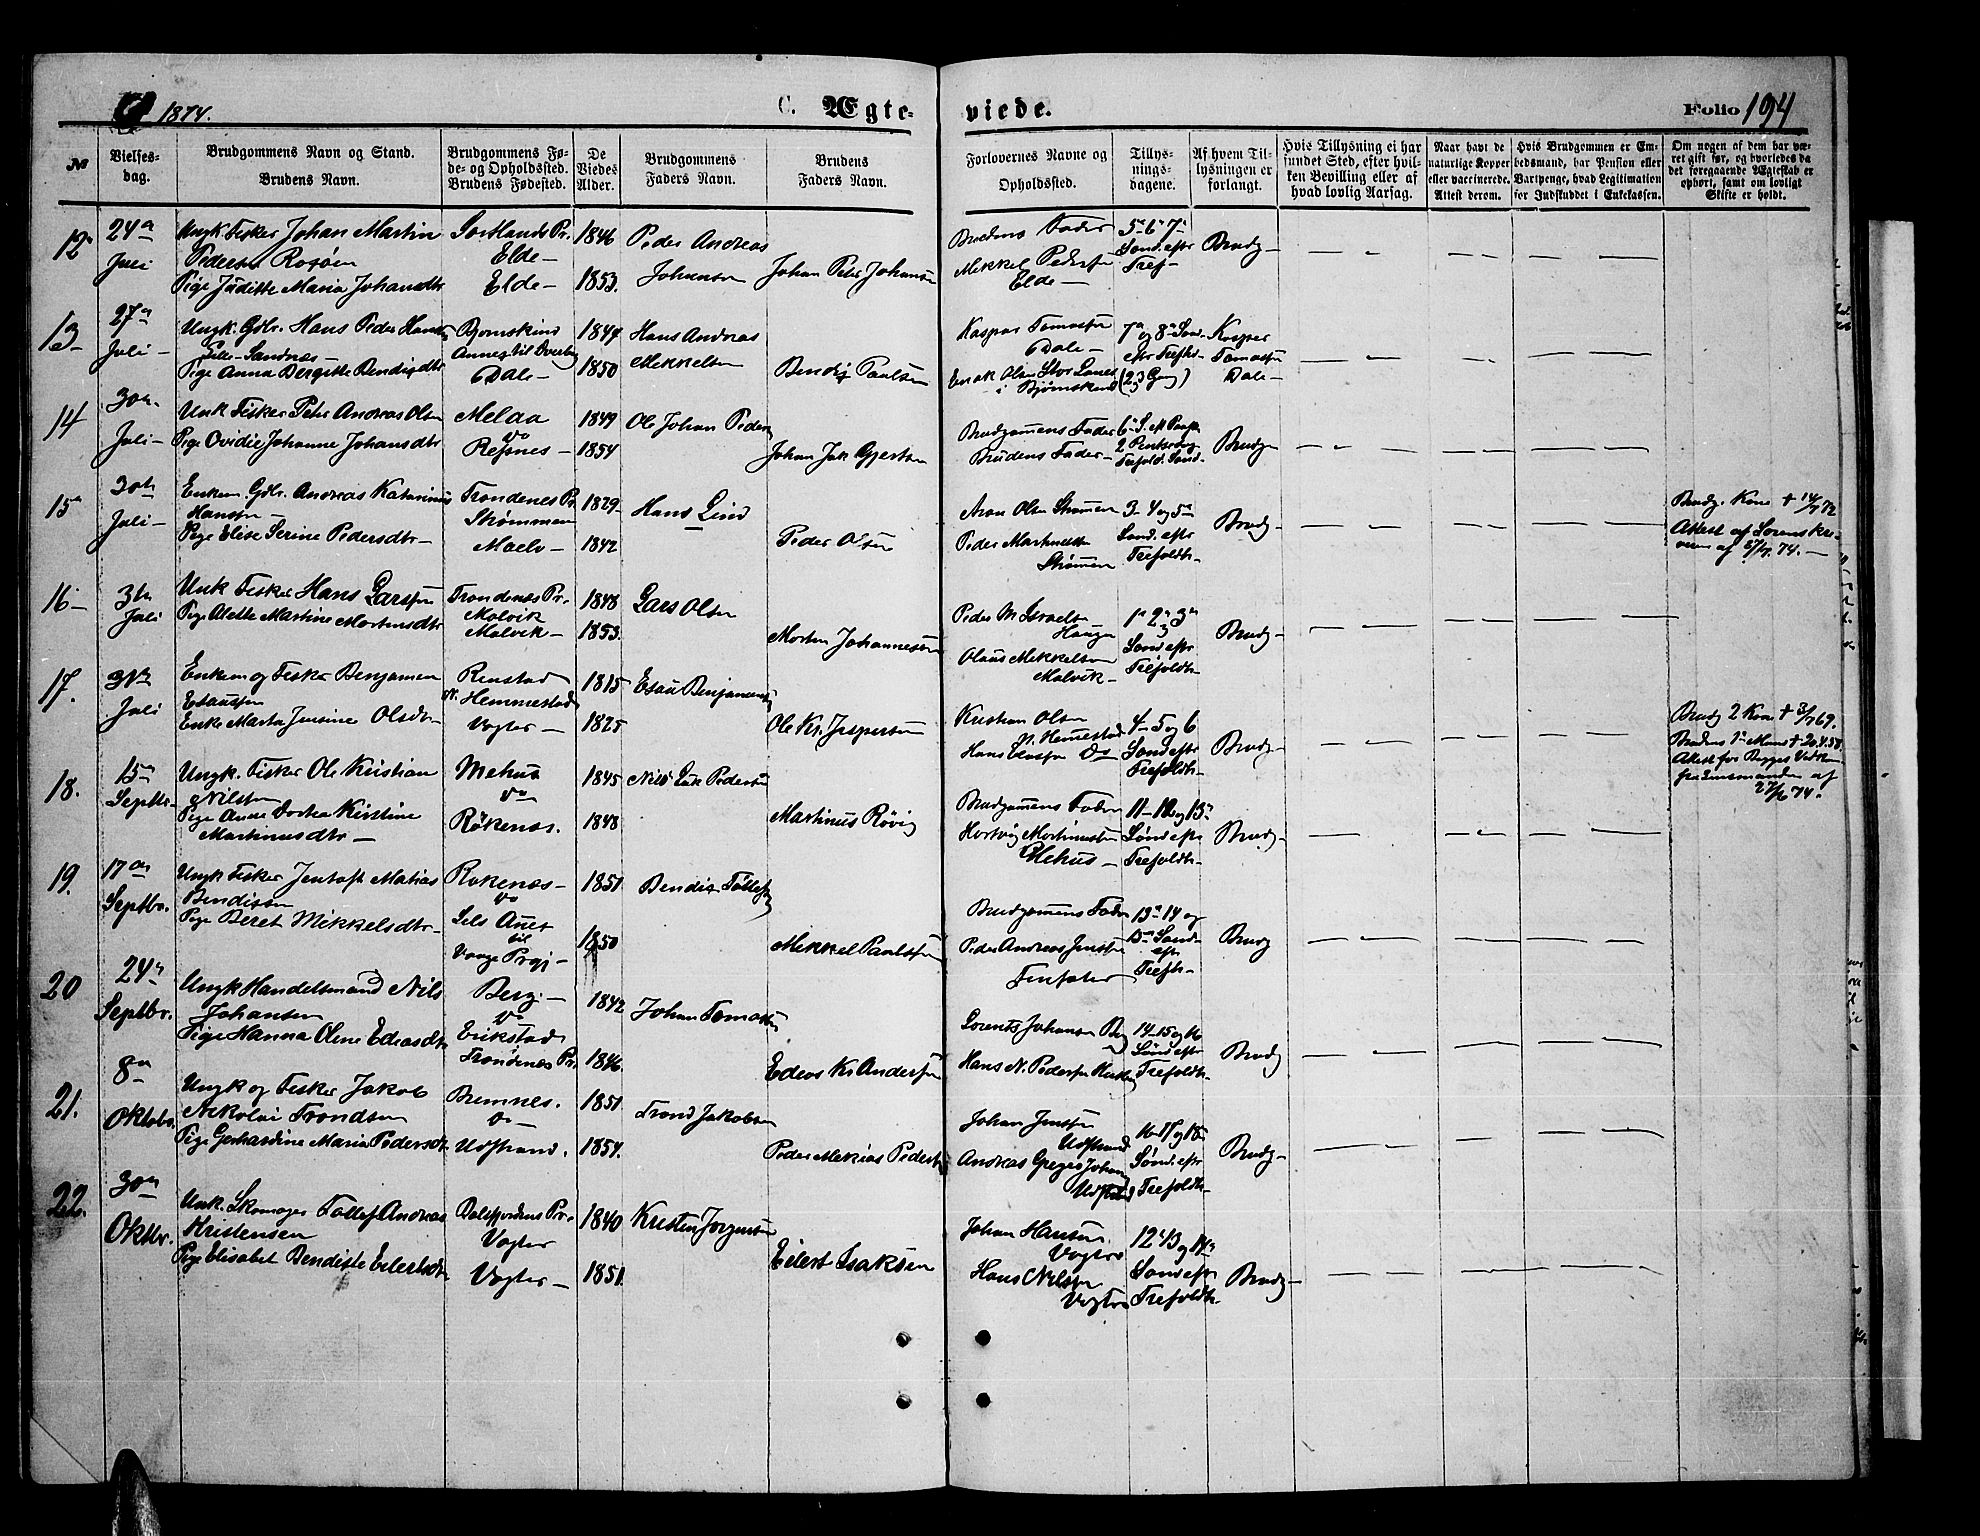 1874.
C. Ægte-
viede.
Folio 194
No
Vielses-
dag.
Brudgommens Navn og Stand.
Brudens Navn.
Brudgommens Fø-
de- og Opholdssted.
Brudens Fødested.
De
Viedes
Alder.
Brudgommens
Faders Navn.
Brudens
Faders Navn.
Forlovernes Navne og
Opholdssted.
Tillys-
nings-
dagene.
Af hvem Til-
lysningen er
forlangt.
Hvis Tillysning ei har
fundet Sted, efter hvil-
ken Bevilling eller af
hvad lovlig Aarsag.
Naar havt de
naturlige Kopper
eller vaccinerede.
Attest derom.
Hvis Brudgommen er Em-
bedsmand, har Pension eller
Vartpenge, hvad Legitimation
for Indskuddet i Enkekassen.
Om nogen af dem har væ-
ret gift før, og hvorledes da
det foregaaende Ægteskab er
ophørt, samt om lovligt
Skifte er holdt.
12
24a
Juli
Ungk. Fisker Johan Martin
Pedersen Rosøen
Pige Juditte Maria Johansdtr
Sortlands Pr.
Elde –
Elde –
1846
1853.
Peder Andreas
Johansen
Johan Peter Johansen
Brudens Fader
Mikkel Pedersen
Elde –
5 6 7
Sond. eftr
Tref –
Brudg –
13
27a
Juli –
Ungk. Gdbr. Hans Peder Hansen
Lille-Sandnes –
Pige Anna Bergitte Bendiksdtr
Bjørnskind
Annex til Dverberg
Dale –
1847
1850
Hans Andreas
Mekkelsen
Bendig Paulsen
Kaspar Tomassen
Dale –
Enok Olsen Stor Sanes
i Bjørnskind
7a og 8a Sond.
eftr Trefds –
(2, 3 Gang)
Kaspar
Tomassen
Dale –
14
30te
Juli –
Unk Fisker Peter Andreas Olsen
Pige Ovidie Johanne Johansdtr
Melaa
do
Refsnes –
1849
1854
Ole Johan Pedersen
Johan Jak Gjertsen
Brudgomens Fader
Brudens Fader –
6 S. eft Paaske
2 Pintsedag
Trefold. Sond –
Brudg
15
30te
Juli –
Enkem. Gdbr. Andreas Katarinus
Hansen –
Pige Elise Serine Pedersdtr –
Trondenes Pr
Strømmen
Maelv –
1829 –
1842
Hans Lind
Peder Olsen
Aron Olsen Strømmen
Peder Martin
Strømmen
3– 4 og 5
Sond. eftr
Trefoldh –
Brudg –
Brudg. Kone † 14/7 72
Attest af Sorenskri-
veren af 74. –
16 –
31te
Juli
Unk Fisker Hans Larssen
Pige Alette Martine Mortensdtr
Trondenæs Pr.
Molvik
Molvik –
1848
1853.
Lars Olsen
Morten Johannessen
Peder M. Israelsen
Haugen
Olaus Mikkelsen
Molvik –
1 2 3
Sond eftr
Trefoldh –
Brudg –
17.
31te
Juli
Enkem og Fisker Benjamen
Esausen
Enke Marta Jensine Olsdr.
Renstad
N. Hemmestad
Vogter –
1815
1825
Esau Benjamensen
Ole Kr. Jespersen
Kristian Olsen
N. Hemmestad
Hans Do
4– 5 og 6
Sond eftr
Trefoldh –
Brudg –
Brudg 2 Kone † 3/7 69.
Brudens 1e Mand † 20.4.58.
Attest for Begges Vedkom
fra Lensmanden af
27/6 74.
18.
15
Septbr.
Ungk. Fisker Ole Kristian
Nilsen
Pige Anne Dortea Kirstine
Martinusdtr –
Mehus
do
Røkenæs.
1845
1848
Nils Luk Pedersen
Martinus Røvig
Brudgomens Fader
Hartvig Martinussen
Mehus –
11– 12 og 13
Sond eftr
Trefoldh –
Brudg –
19.
17a
Septbr.
Ungk Fisker Jentoft Matias
Bendiksen
Pige Beret Mikkelsdtr –
Rokenæs –
do
Sels Anex
til
Vaage Prgj –
1851
1850
Bendig Tollefsen
Mekkel Paulsen
Brudgomens Fader
Peder Andreas Jensen
13 14 og
15 Sond–
eftr
Trefh –
Brudg
20
24
Septbr.
Ungk Handelsmand Nils
Johansen
Pige Hanna Olene Edeasdtr
Berg –
do
Erikstad
Trondenæs Pr.
1842
1846.
Johan Tomassen
Edeas Kr Andersen
Lorents Johansen Berg
Hans N. Pedersen
14–15 og 16
Sond eftr
Trefoldh –
Brudg
21.
8a
Oktobr.
Ungk og Fisker Jakob
Nikolai Trondsen
Pige Gerhardine Maria Pedersdtr
Bremnes.
do –
Udstrand.
1851
1854.
Trond Jakobsen
Peder Mekias Pedersen
Johan Jensen
Udstrand
Andreas Greger Johan
Udstrand
16 17 og 18
Sond. eftr
Trefoldh –
Brudg –
22.
30te
Oktbr.
Unk. Skomager Tollef Andreas
Kristensen
Pige Elisabet Bendikte Eilertsdtr
Dalsfjordens Pr.
Vogter
Vogter –
1840
1851.
Kristen Jorgensen
Eilert Isaksen
Johan Hansen
Vogter
Hans Nilssen
Vogter
12 13 og 14
Sond eftr
Trefoldh –
Brudg –